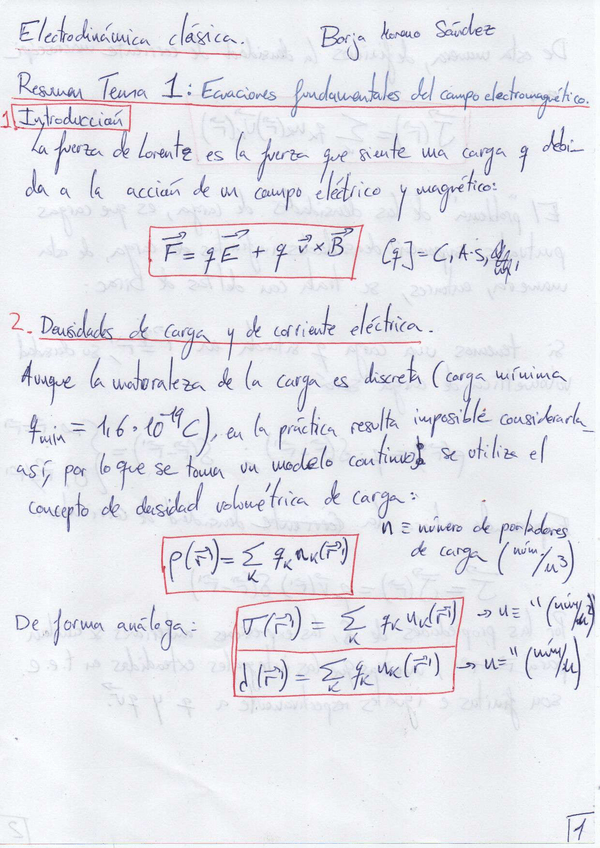 Electrodinámica clásica. Borja Moreno Sández
Resumen Tema 1: Ecuaciones fundamentales del campo electromagnético.
1. Introducción
La fuerza de Lorentz es la fuerza que siente una carga q debi-
da a la acción de un campo eléctrico y magnético:
F⃗ = qE⃗ + q v⃗ × B⃗ [q] = C, A·s,
2. Densidades de carga y de corriente eléctrica.
Aunque la naturaleza de la carga es discreta (carga mínima
q_min = 1,6 · 10⁻¹⁹ C), en la práctica resulta imposible considerarla
así, por lo que se toma un modelo continuo; se utiliza el
concepto de densidad volumétrica de carga:
n ≡ número de portadores
de carga (núm/m³)
ρ(r⃗') = Σ_K q_K n_K(r⃗')
De forma análoga:
σ(r⃗') = Σ_K q_K n_K(r⃗') → n ≡ " (núm/m²)
λ(r⃗') = Σ_K q_K n_K(r⃗') → n ≡ " (núm/m)
1